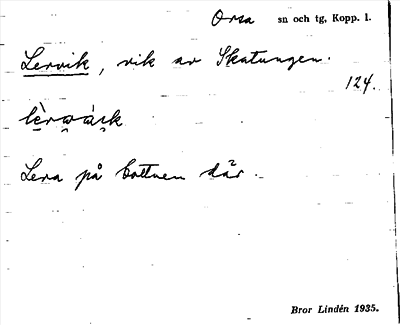 Orsa sn och tg, Kopp. l.
Lervik, vik av Skatungen.
124.
Lera på bottnen där.
Bror Lindén 1935.